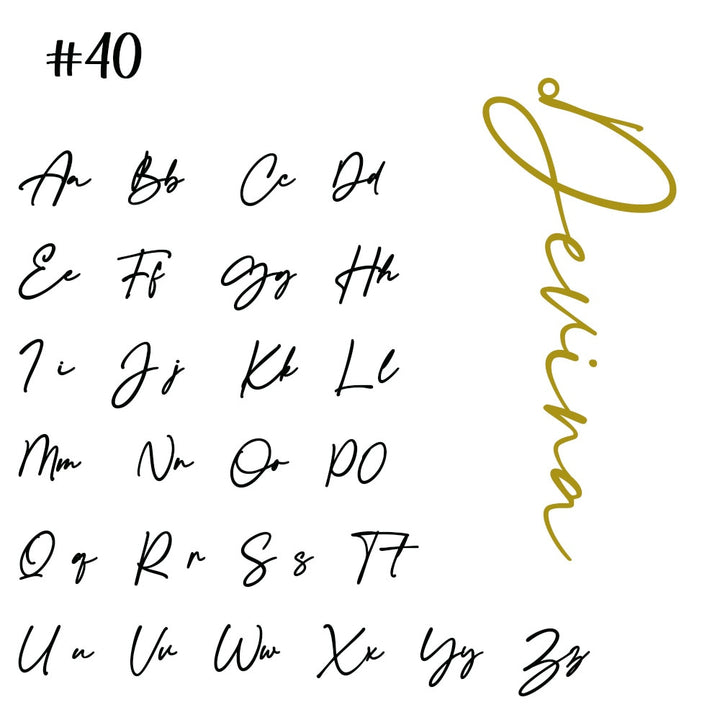 #40
Aa Bb Cc Dd
Ee Ff Gg Hh
I i J j Kk L l
Mm Nn Oo PO
Q q R r S s Tt
U u Vv Ww Xx Yy Zz
Devina